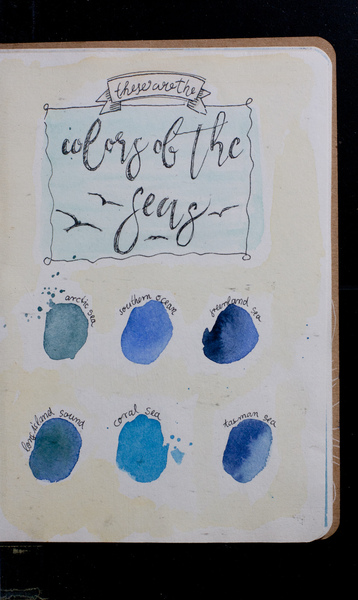 these are the
colors of the
seas
arctic sea
southern ocean
greenland sea
long island sound
coral sea
tasman sea